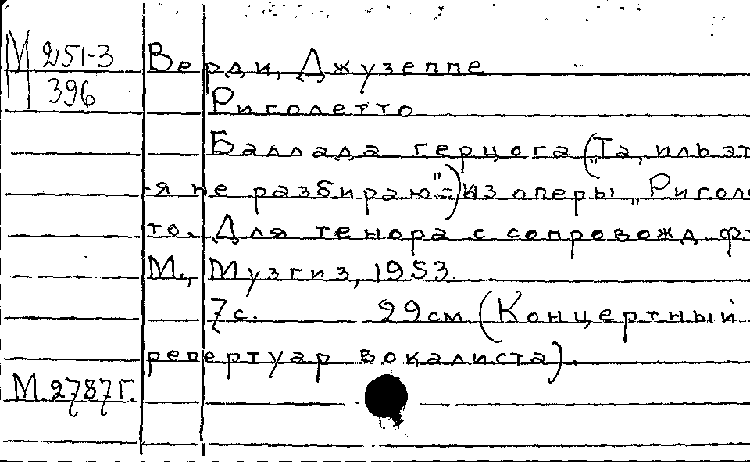 М 251-3 Верди, Джузеппе
396 Риголетто
Баллада герцога („Та, иль эт
-я не разбираю"-) из оперы „Риголе
то. Для тенора с сопровожд ф
М., Музгиз, 1953.
7с. 29см (Концертный
репертуар вокалиста).
М.2787г.